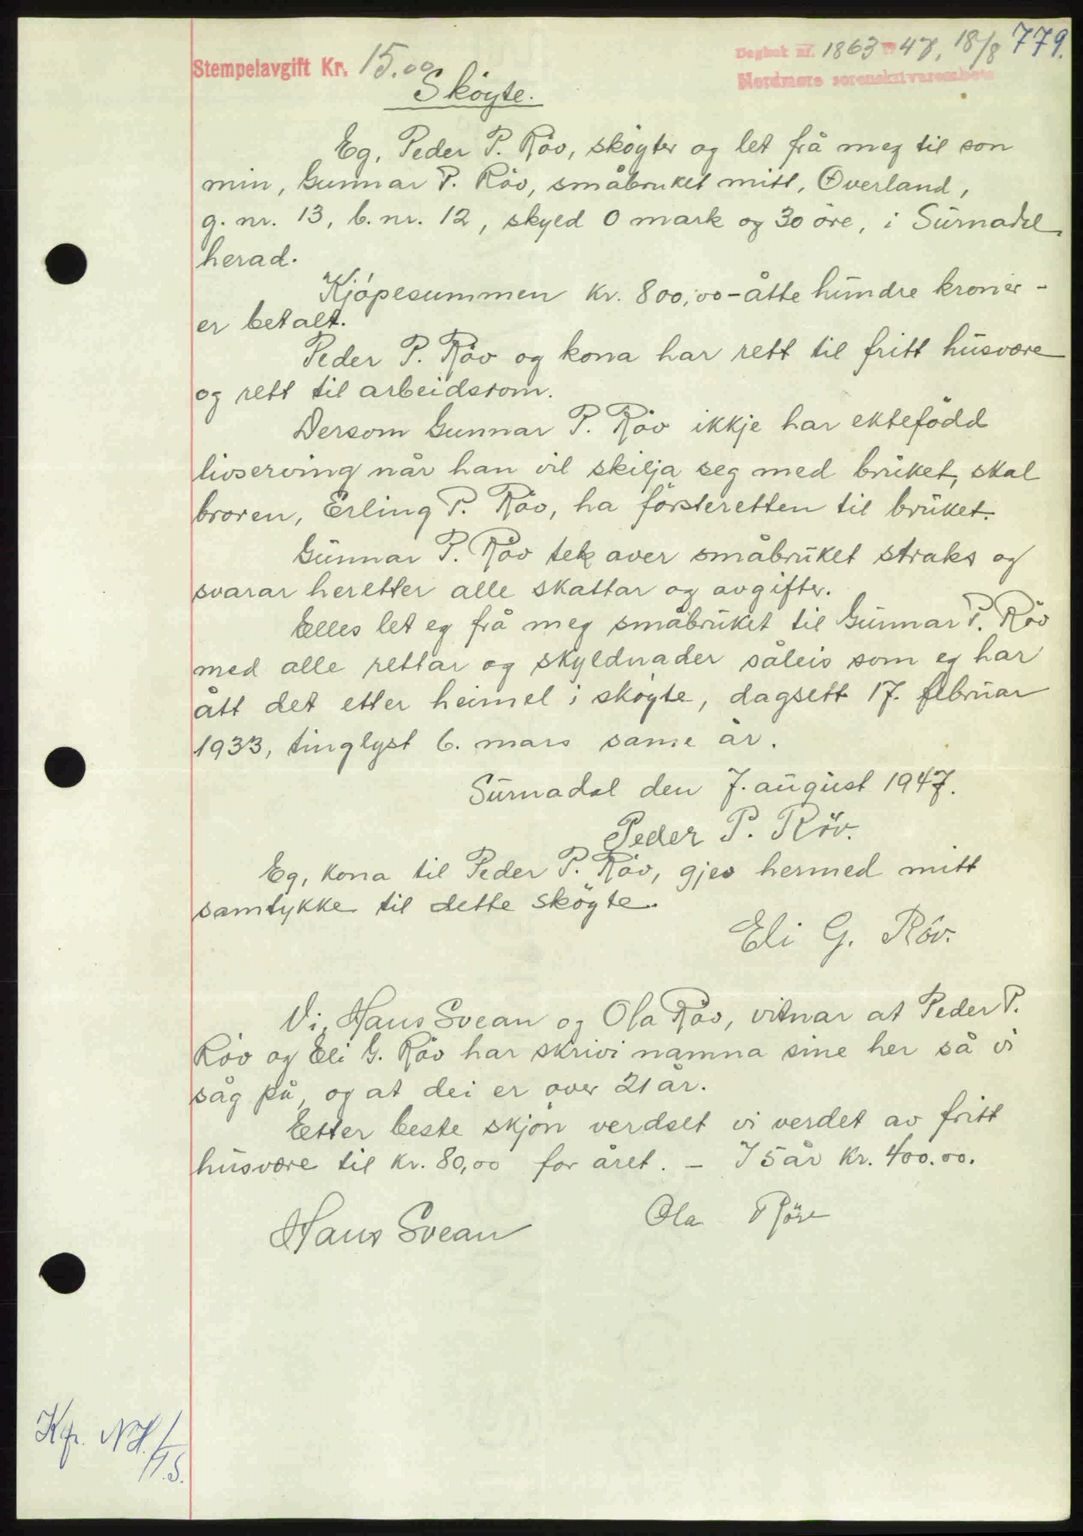 779.
Dagbok nr. 1863 - 47, 18/8
Nordmøre sorenskrivarembete
Stempelavgift Kr. 15.00
Sköyte.
Eg, Peder P. Röv, sköyter og let frå meg til son
min, Gunnar P. Röv, småbruket mitt, Øverland,
g. nr. 13, b. nr. 12, skyld 0 mark og 30 öre, i Surnadal
herad.
Kjöpesummen kr. 800,00 - åtte hundre kroner -
er betalt.
Peder P. Röv og kona har rett til fritt husvære
og rett til arbeidsrom.
Dersom Gunnar P. Röv ikkje har ektefödd
livserving når han vil skilja seg med bruket, skal
broren, Erling P. Röv, ha försteretten til bruket.
Gunnar P. Röv tek over småbruket straks og
svarar heretter alle skattar og avgifter.
Elles let eg frå meg småbruket til Gunnar P. Röv
med alle rettar og skyldnader såleis som eg har
ått det etter heimel i sköyte, dagsett 17. februar
1933, tinglyst 6. mars same år.
Surnadal den 7. august 1947.
Peder P. Röv.
Eg, kona til Peder P. Röv, gjev hermed mitt
samtykke til dette sköyte.
Eli G. Röv.
Vi, Hans Svean og Ola Röv, vitnar at Peder P.
Röv og Eli G. Röv har skrivi namna sine her så vi
såg på, og at dei er over 21 år.
Etter beste skjön verdset vi verdet av fritt
husvære til kr. 80,00 for året. - I 5 år kr. 400.00.
Hans Svean
Ola Röv
Kfr. NH./
H.S.